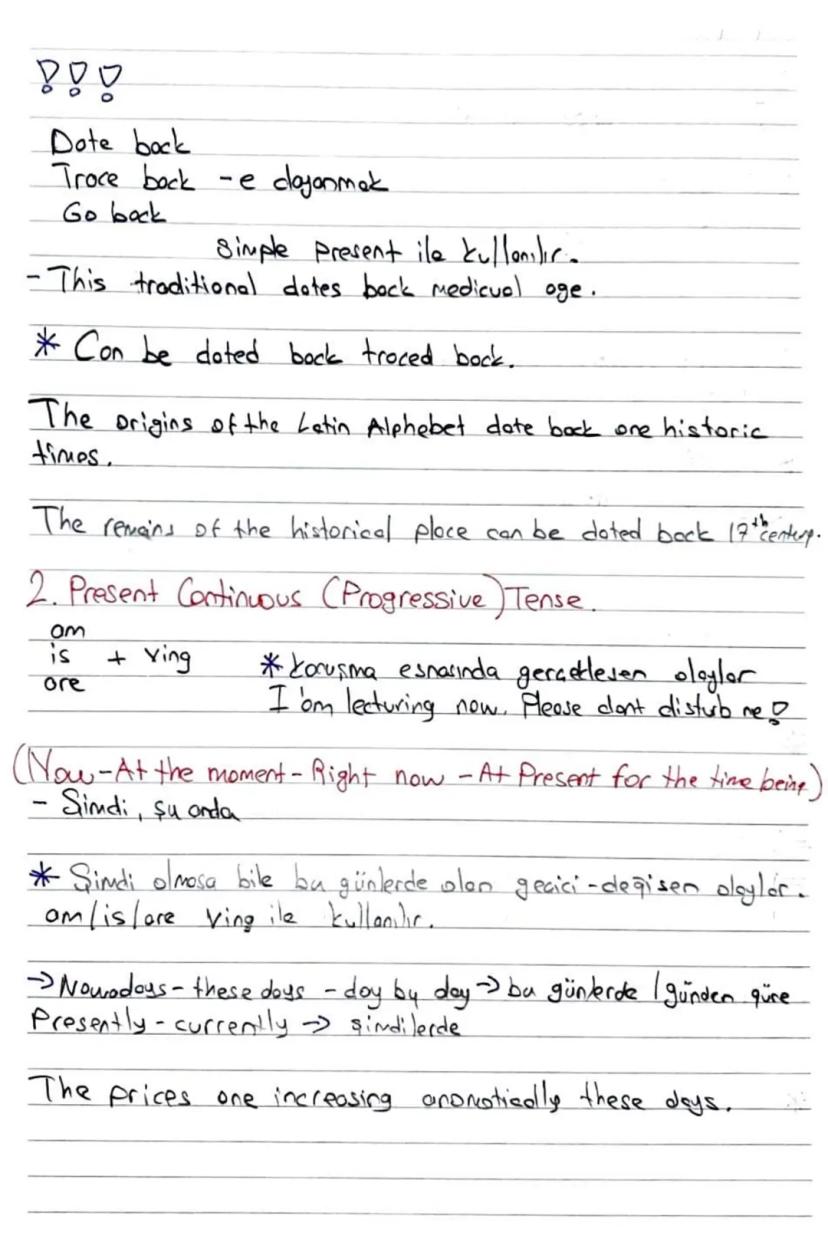 !!!
Date back
Trace back -e dayanmak
Go back
Simple present ile kullanılır.
- This traditional dates back medicval age.
* Can be dated back traced back.
The origins of the Latin Alphabet date back one historic
times.
The remains of the historical place can be dated back 17th century.
2. Present Continuous (Progressive) Tense.
am
is + Ving
are
* konuşma esnasında gerçekleşen olaylar
I'am lecturing now. Please dont distub me!
(Now-At the moment-Right now -At Present for the time being)
- Şimdi, şu anda
* Şimdi olmasa bile bu günlerde olan geçici-değişen olaylar.
am/is/are Ving ile kullanılır.
→Nowadays-these days -day by day→bu günlerde /günden güne
Presently-currently → şimdilerde
The prices one increasing these days.